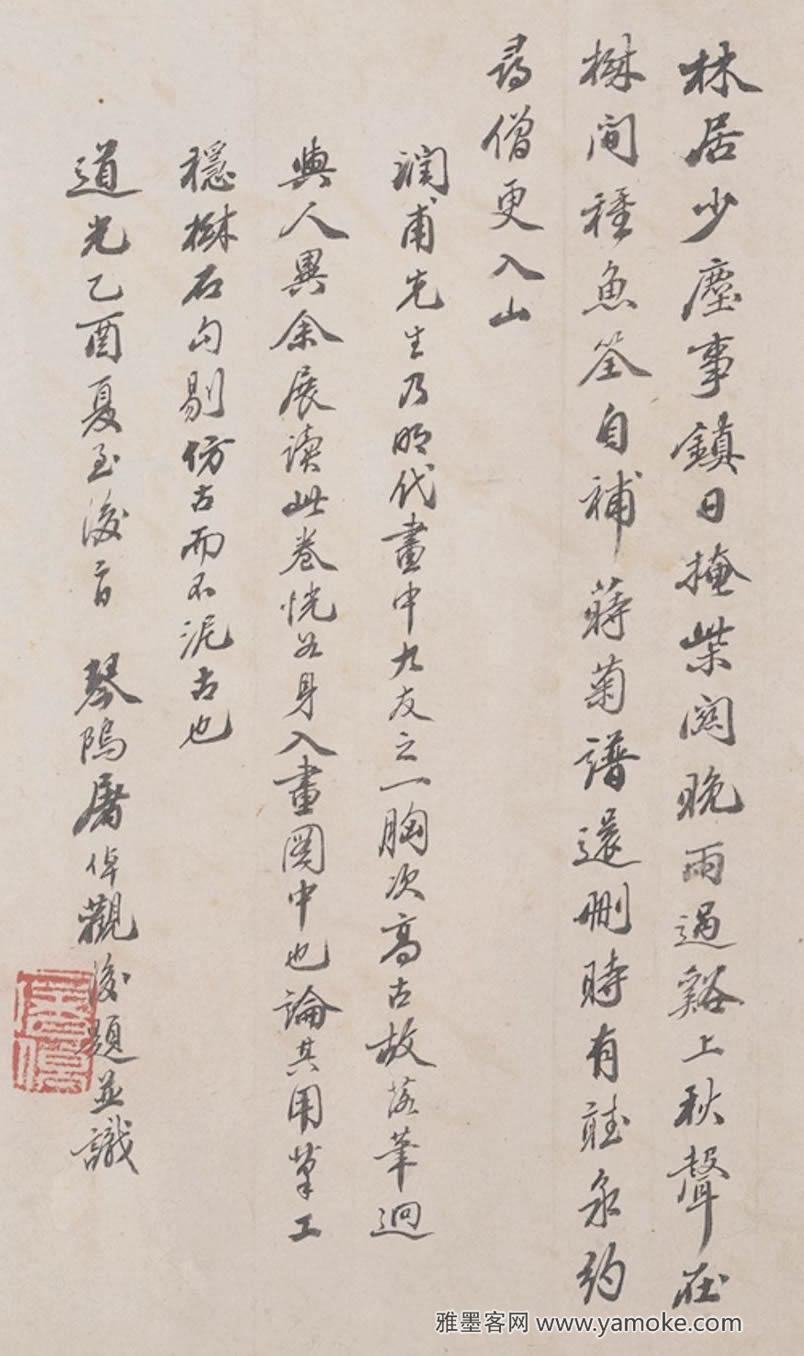 林居少塵事鎮日掩柴関晚雨過谿上秋聲在
樹間種魚筌自補蒔菊譜還刪時有聽泉約
尋僧更入山
潤甫先生乃明代畫中九友之一胸次高古故落筆迥
與人異余展讀此卷恍若身入畫圖中也論其用筆工
穩樹石勾剔仿古而不泥古也
道光乙酉夏至後二日 琴隖屠倬觀後題並識
屠倬
雅墨客网 www.yamoke.com